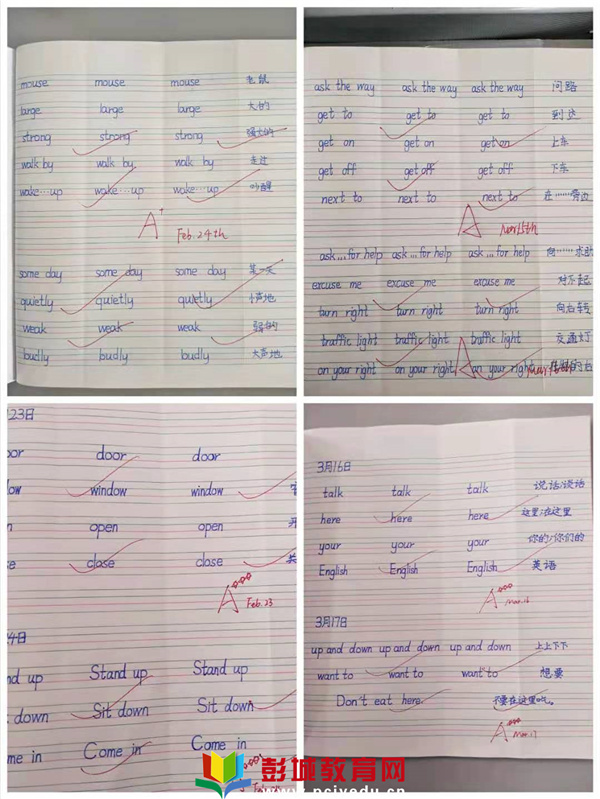 mouse mouse mouse 老鼠
large large large 大的
strong strong strong 强壮的
walk by walk by walk by 走过
wake…up wake…up wake…up 吵醒
A+ Feb. 24th
some day some day some day 某一天
quietly quietly quietly 小声地
weak weak weak 弱的
budly budly budly 大声地
ask the way ask the way ask the way 问路
get to get to get to 到达
get on get on get on 上车
get off get off get off 下车
next to next to next to 在……旁边
A Mar. 15th
ask…for help ask…for help ask…for help 向……求助
excuse me excuse me excuse me 对不起
turn right turn right turn right 向右转
traffic light traffic light traffic light 交通灯
on your right on your right on your right
A
23日
oor door door
ow window window
n open open 开
e close close 关
A Feb. 23
4日
nd up Stand up Stand up
t down Sit down Sit down
me in Come in Come in
3月16日
talk talk talk 说话/谈话
here here here 这里/在这里
your your your 你的/你们的
English English English 英语
A Mar. 16
3月17日
up and down up and down up and down 上上下下
want to want to want to 想要
Don't eat here. 不要在这里吃。
A Mar. 17
彭城教育网
www.pcjyedu.cn